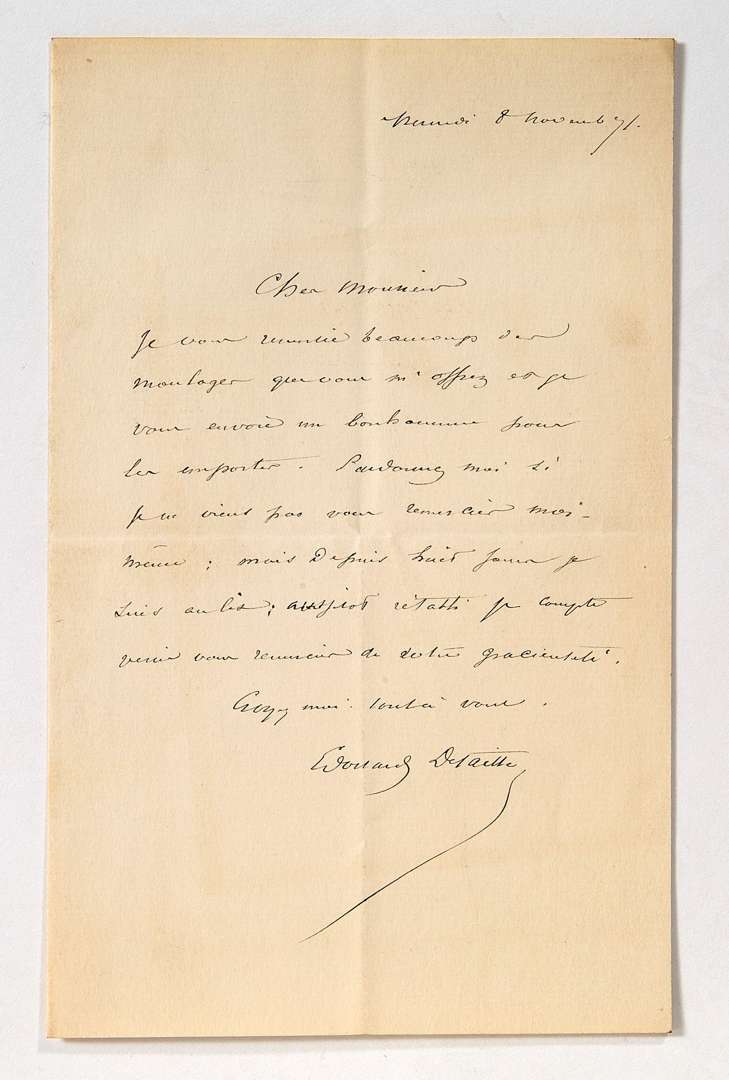 Mercredi 8 Novemb 71.
Cher Monsieur
Je vous remercie beaucoup des
moulages que vous m'offrez et je
vous envoie un bonhomme pour
les emporter. Pardonnez moi si
je ne viens pas vous remercier moi-
même ; mais Depuis huit jours je
suis au lit ; aussitot rétabli je compte
venir vous remercier de votre gracieuseté.
Croyez moi tout à vous.
Edouard Detaille